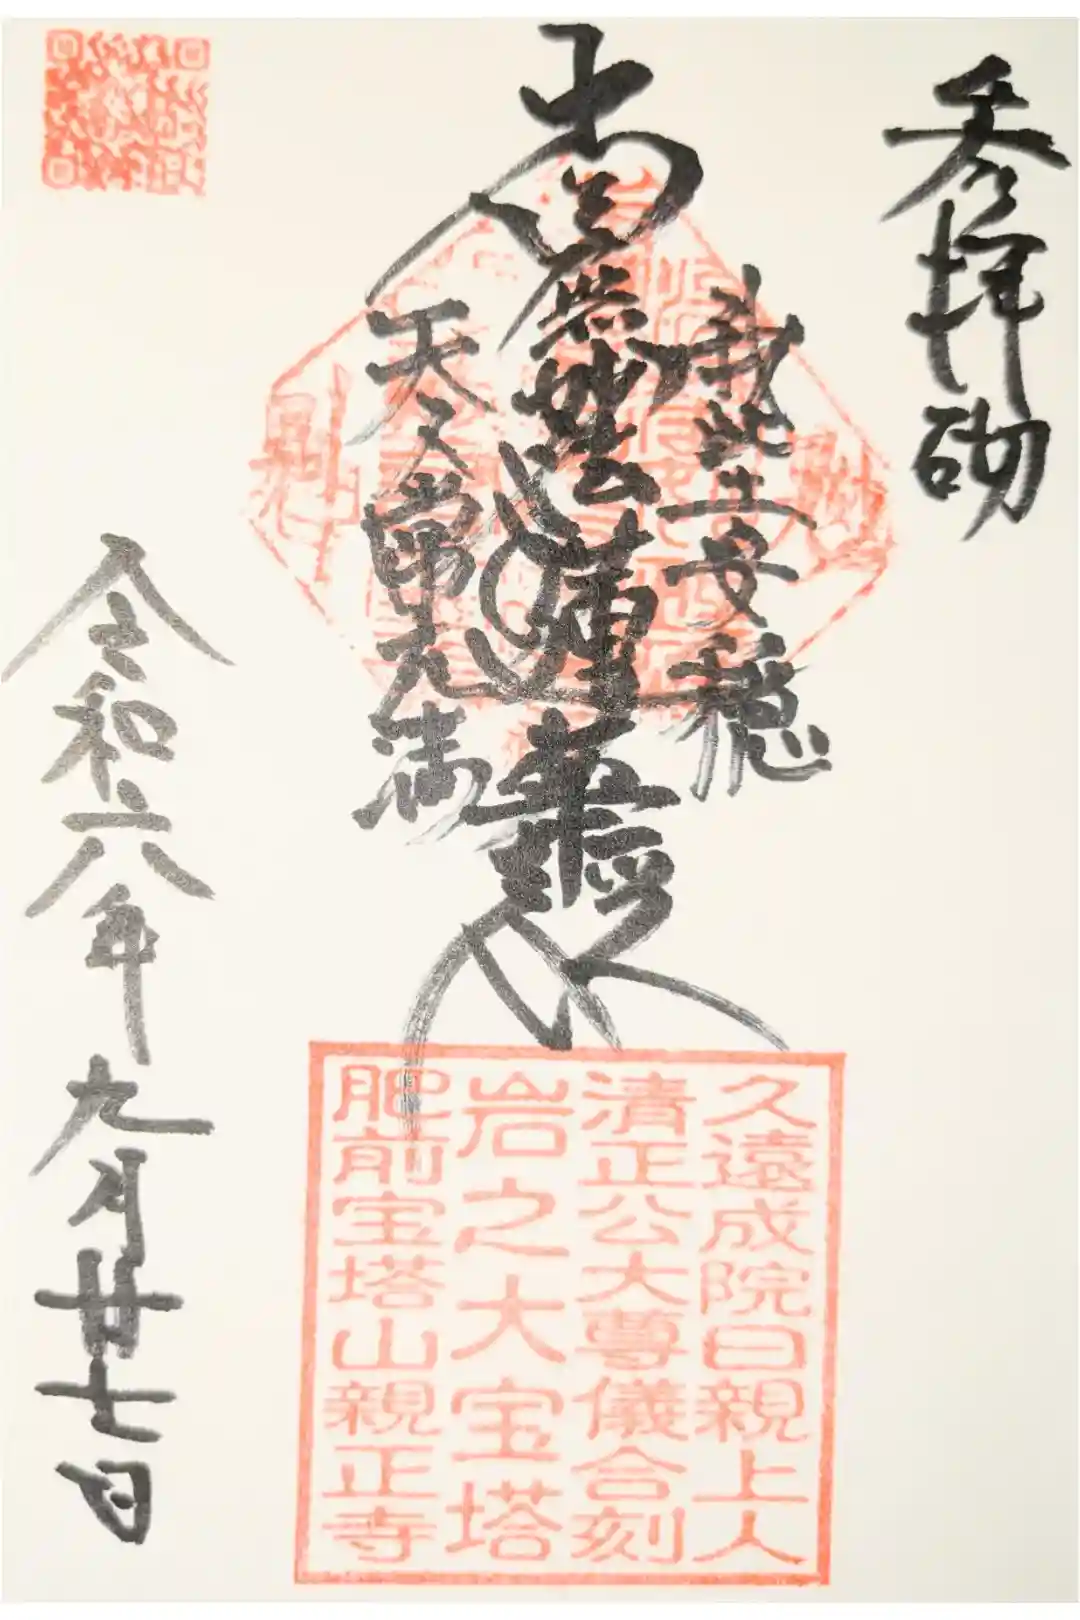 奉拝砌
我此土安穏
南無妙法蓮華経
天人常充満
久遠成院日親上人
清正公大尊儀合刻
岩之大宝塔
肥前宝塔山親正寺
令和六年九月廿七日